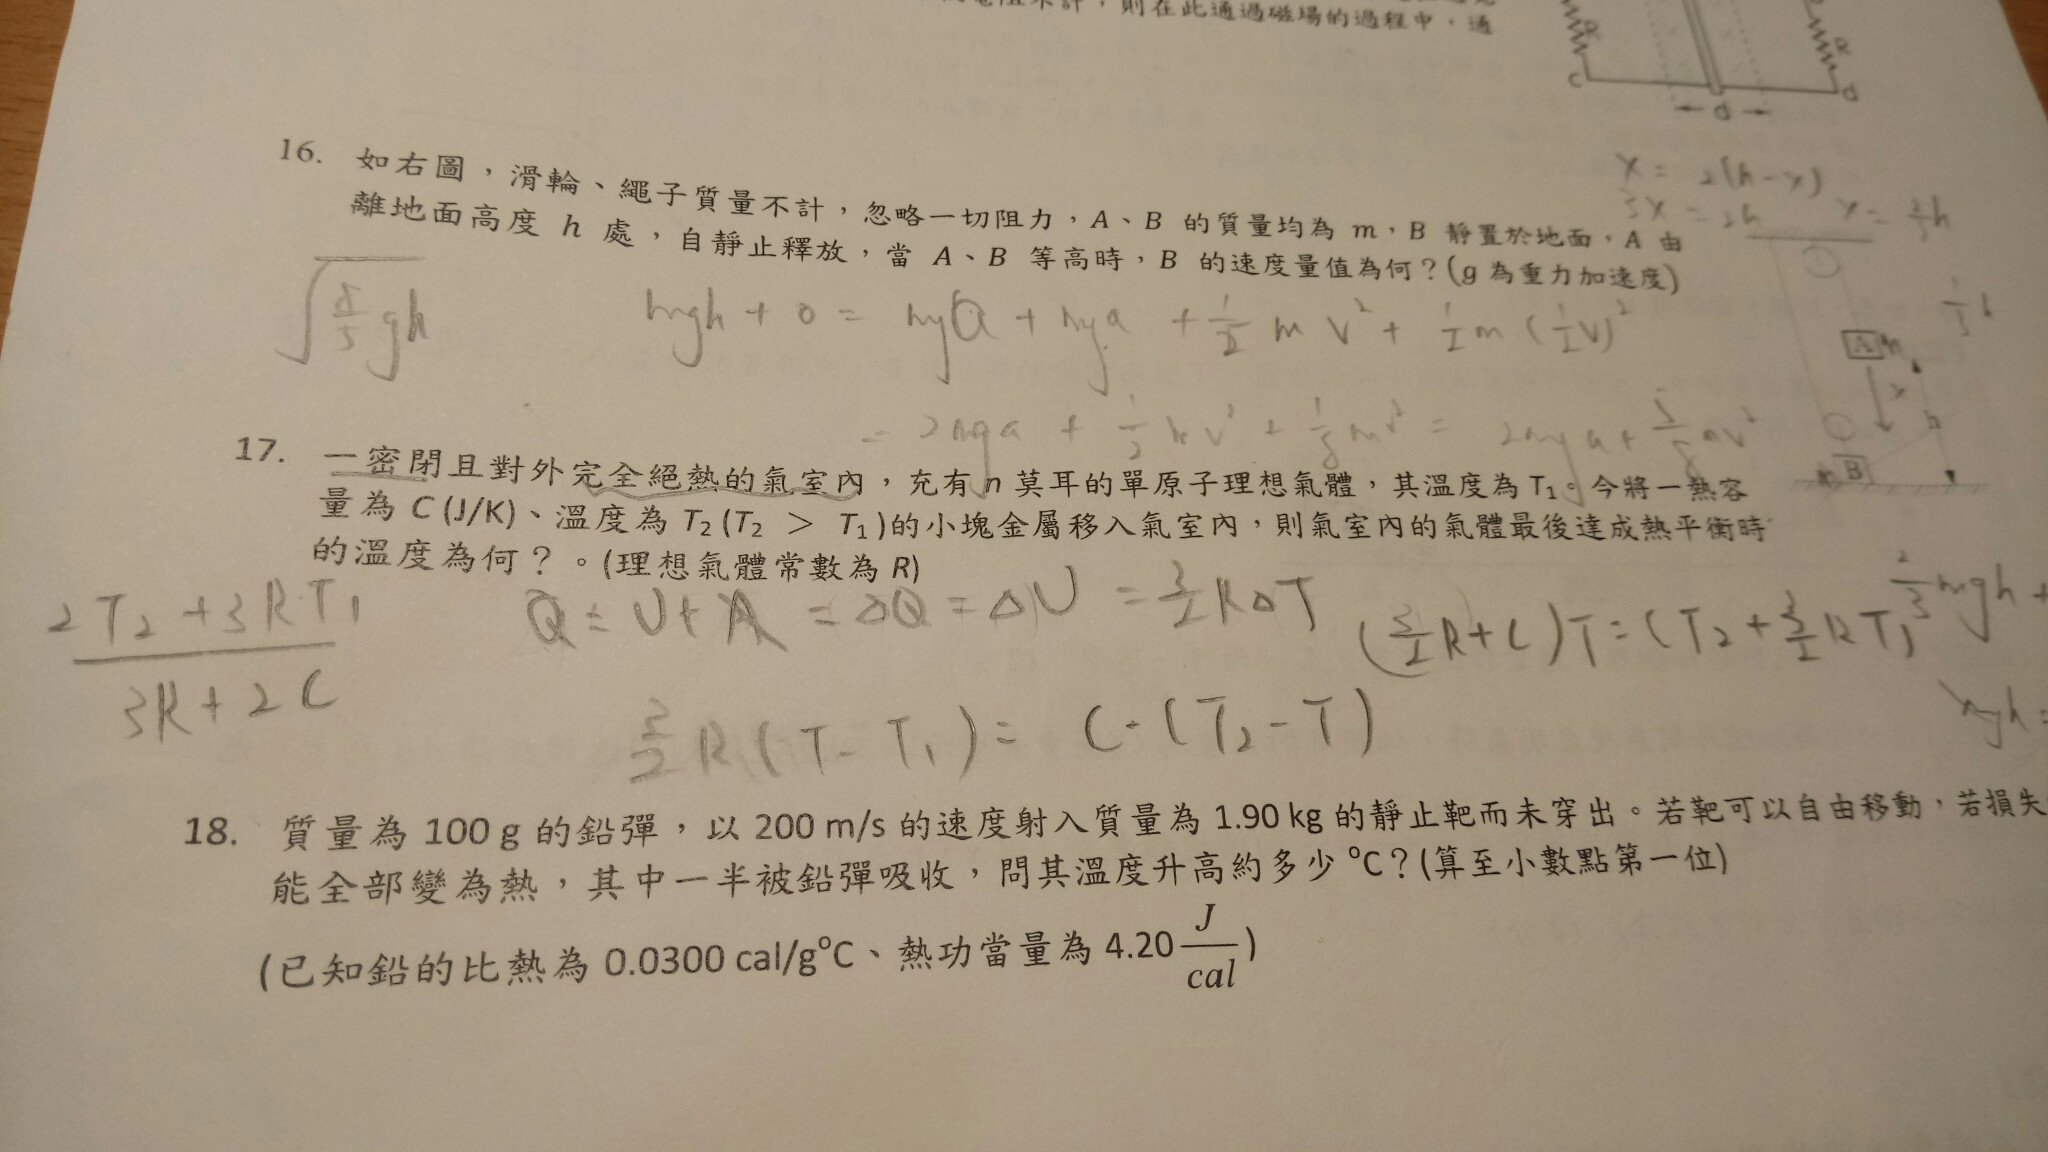 則在此通過磁場的過程中，通
R
R
c
d
d
16. 如右圖，滑輪、繩子質量不計，忽略一切阻力，A、B 的質量均為 m，B 靜置於地面，A 由
離地面高度 h 處，自靜止釋放，當 A、B 等高時，B 的速度量值為何？(g 為重力加速度)
x = 2(h-x)
3x = 2h
A
x
h
B
mgh + 0 = mga + mga + 1/2 m v² + 1/2 m (1/2 v)²
= 2mga + 1/2 mv² + 1/8 mv² = 2mga + 5/8 mv²
17. 一密閉且對外完全絕熱的氣室內，充有 n 莫耳的單原子理想氣體，其溫度為 T₁。今將一熱容
量為 C (J/K)、溫度為 T₂ (T₂ > T₁)的小塊金屬移入氣室內，則氣室內的氣體最後達成熱平衡時
的溫度為何？。(理想氣體常數為 R)
= ΔQ = ΔU = 3/2 RΔT
(3/2 R + C) T = C T₂ + 3/2 R T₁
2/3 mgh +
2T₂ + 3RT₁
3R + 2C
3/2 R (T - T₁) = C · (T₂ - T)
mgh =
18. 質量為 100 g 的鉛彈，以 200 m/s 的速度射入質量為 1.90 kg 的靜止靶而未穿出。若靶可以自由移動，若損失
能全部變為熱，其中一半被鉛彈吸收，問其溫度升高約多少 ℃？(算至小數點第一位)
(已知鉛的比熱為 0.0300 cal/g℃、熱功當量為 4.20 J/cal)